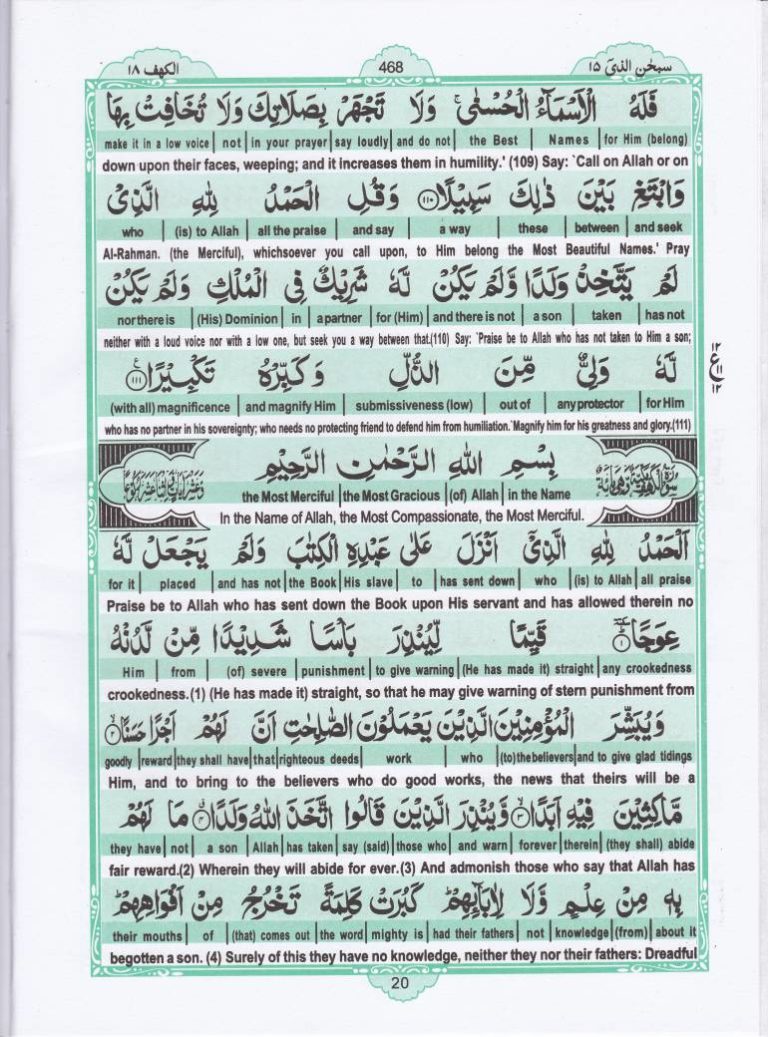 الكهف ١٨ 468 سبحن الذیۤ ١٥
فَلَهُ الْاَسْمَآءُ الْحُسْنٰى ۚ وَلَا تَجْهَرْ بِصَلَاتِكَ وَلَا تُخَافِتْ بِهَا
make it in a low voice | not | in your prayer | say loudly | and do not | the Best | Names | for Him (belong)
down upon their faces, weeping; and it increases them in humility.' (109) Say: `Call on Allah or on
وَابْتَغِ بَيْنَ ذٰلِكَ سَبِيْلًا ﴿١١٠﴾ وَقُلِ الْحَمْدُ لِلّٰهِ الَّذِىْ
who | (is) to Allah | all the praise | and say | a way | these | between | and seek
Al-Rahman. (the Merciful), whichsoever you call upon, to Him belong the Most Beautiful Names.' Pray
لَمْ يَتَّخِذْ وَلَدًا وَّلَمْ يَكُنْ لَّهٗ شَرِيْكٌ فِى الْمُلْكِ وَلَمْ يَكُنْ
nor there is | (His) Dominion | in | a partner | for (Him) | and there is not | a son | taken | has not
neither with a loud voice nor with a low one, but seek you a way between that.(110) Say: `Praise be to Allah who has not taken to Him a son;
لَّهٗ وَلِىٌّ مِّنَ الذُّلِّ وَكَبِّرْهُ تَكْبِيْرًا ﴿١١١﴾
١٢
ع ١١
١٢
(with all) magnificence | and magnify Him | submissiveness (low) | out of | any protector | for Him
who has no partner in his sovereignty; who needs no protecting friend to defend him from humiliation.`Magnify him for his greatness and glory.(111)
بِسْمِ اللهِ الرَّحْمٰنِ الرَّحِيْمِ
the Most Merciful | the Most Gracious | (of) Allah | in the Name
In the Name of Allah, the Most Compassionate, the Most Merciful.
اَلْحَمْدُ لِلّٰهِ الَّذِىْۤ اَنْزَلَ عَلٰى عَبْدِهِ الْكِتٰبَ وَلَمْ يَجْعَلْ لَّهٗ
for it | placed | and has not | the Book | His slave | to | has sent down | who | (is) to Allah | all praise
Praise be to Allah who has sent down the Book upon His servant and has allowed therein no
عِوَجًا ﴿١﴾ قَيِّمًا لِّيُنْذِرَ بَاْسًا شَدِيْدًا مِّنْ لَّدُنْهُ
Him | from | (of) severe | punishment | to give warning | (He has made it) straight | any crookedness
crookedness.(1) (He has made it) straight, so that he may give warning of stern punishment from
وَيُبَشِّرَ الْمُؤْمِنِيْنَ الَّذِيْنَ يَعْمَلُوْنَ الصّٰلِحٰتِ اَنَّ لَهُمْ اَجْرًا حَسَنًا ﴿٢﴾
goodly | reward | they shall have | that | righteous deeds | work | who | (to) the believers | and to give glad tidings
Him, and to bring to the believers who do good works, the news that theirs will be a
مَّاكِثِيْنَ فِيْهِ اَبَدًا ﴿٣﴾ وَّيُنْذِرَ الَّذِيْنَ قَالُوا اتَّخَذَ اللهُ وَلَدًا ﴿٤﴾ مَا لَهُمْ
they have | not | a son | Allah | has taken | say (said) | those who | and warn | forever | therein | (they shall) abide
fair reward.(2) Wherein they will abide for ever.(3) And admonish those who say that Allah has
بِهٖ مِنْ عِلْمٍ وَّلَا لِاٰبَآئِهِمْ ؕ كَبُرَتْ كَلِمَةً تَخْرُجُ مِنْ اَفْوَاهِهِمْ ؕ
their mouths | of | (that) comes out | the word | mighty is | had their fathers | not | knowledge | (from) | about it
begotten a son. (4) Surely of this they have no knowledge, neither they nor their fathers: Dreadful
20